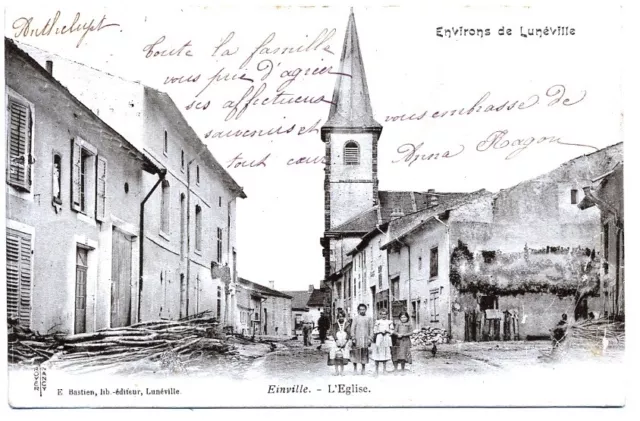 Anthelupt
Environs de Lunéville
Toute la famille
vous prie d'agréer
ses affectueux
souvenirs et vous embrasse de
tout cœur Anna Hagon
E. Bastien, lib.-éditeur, Lunéville
Einville. - L'Eglise.